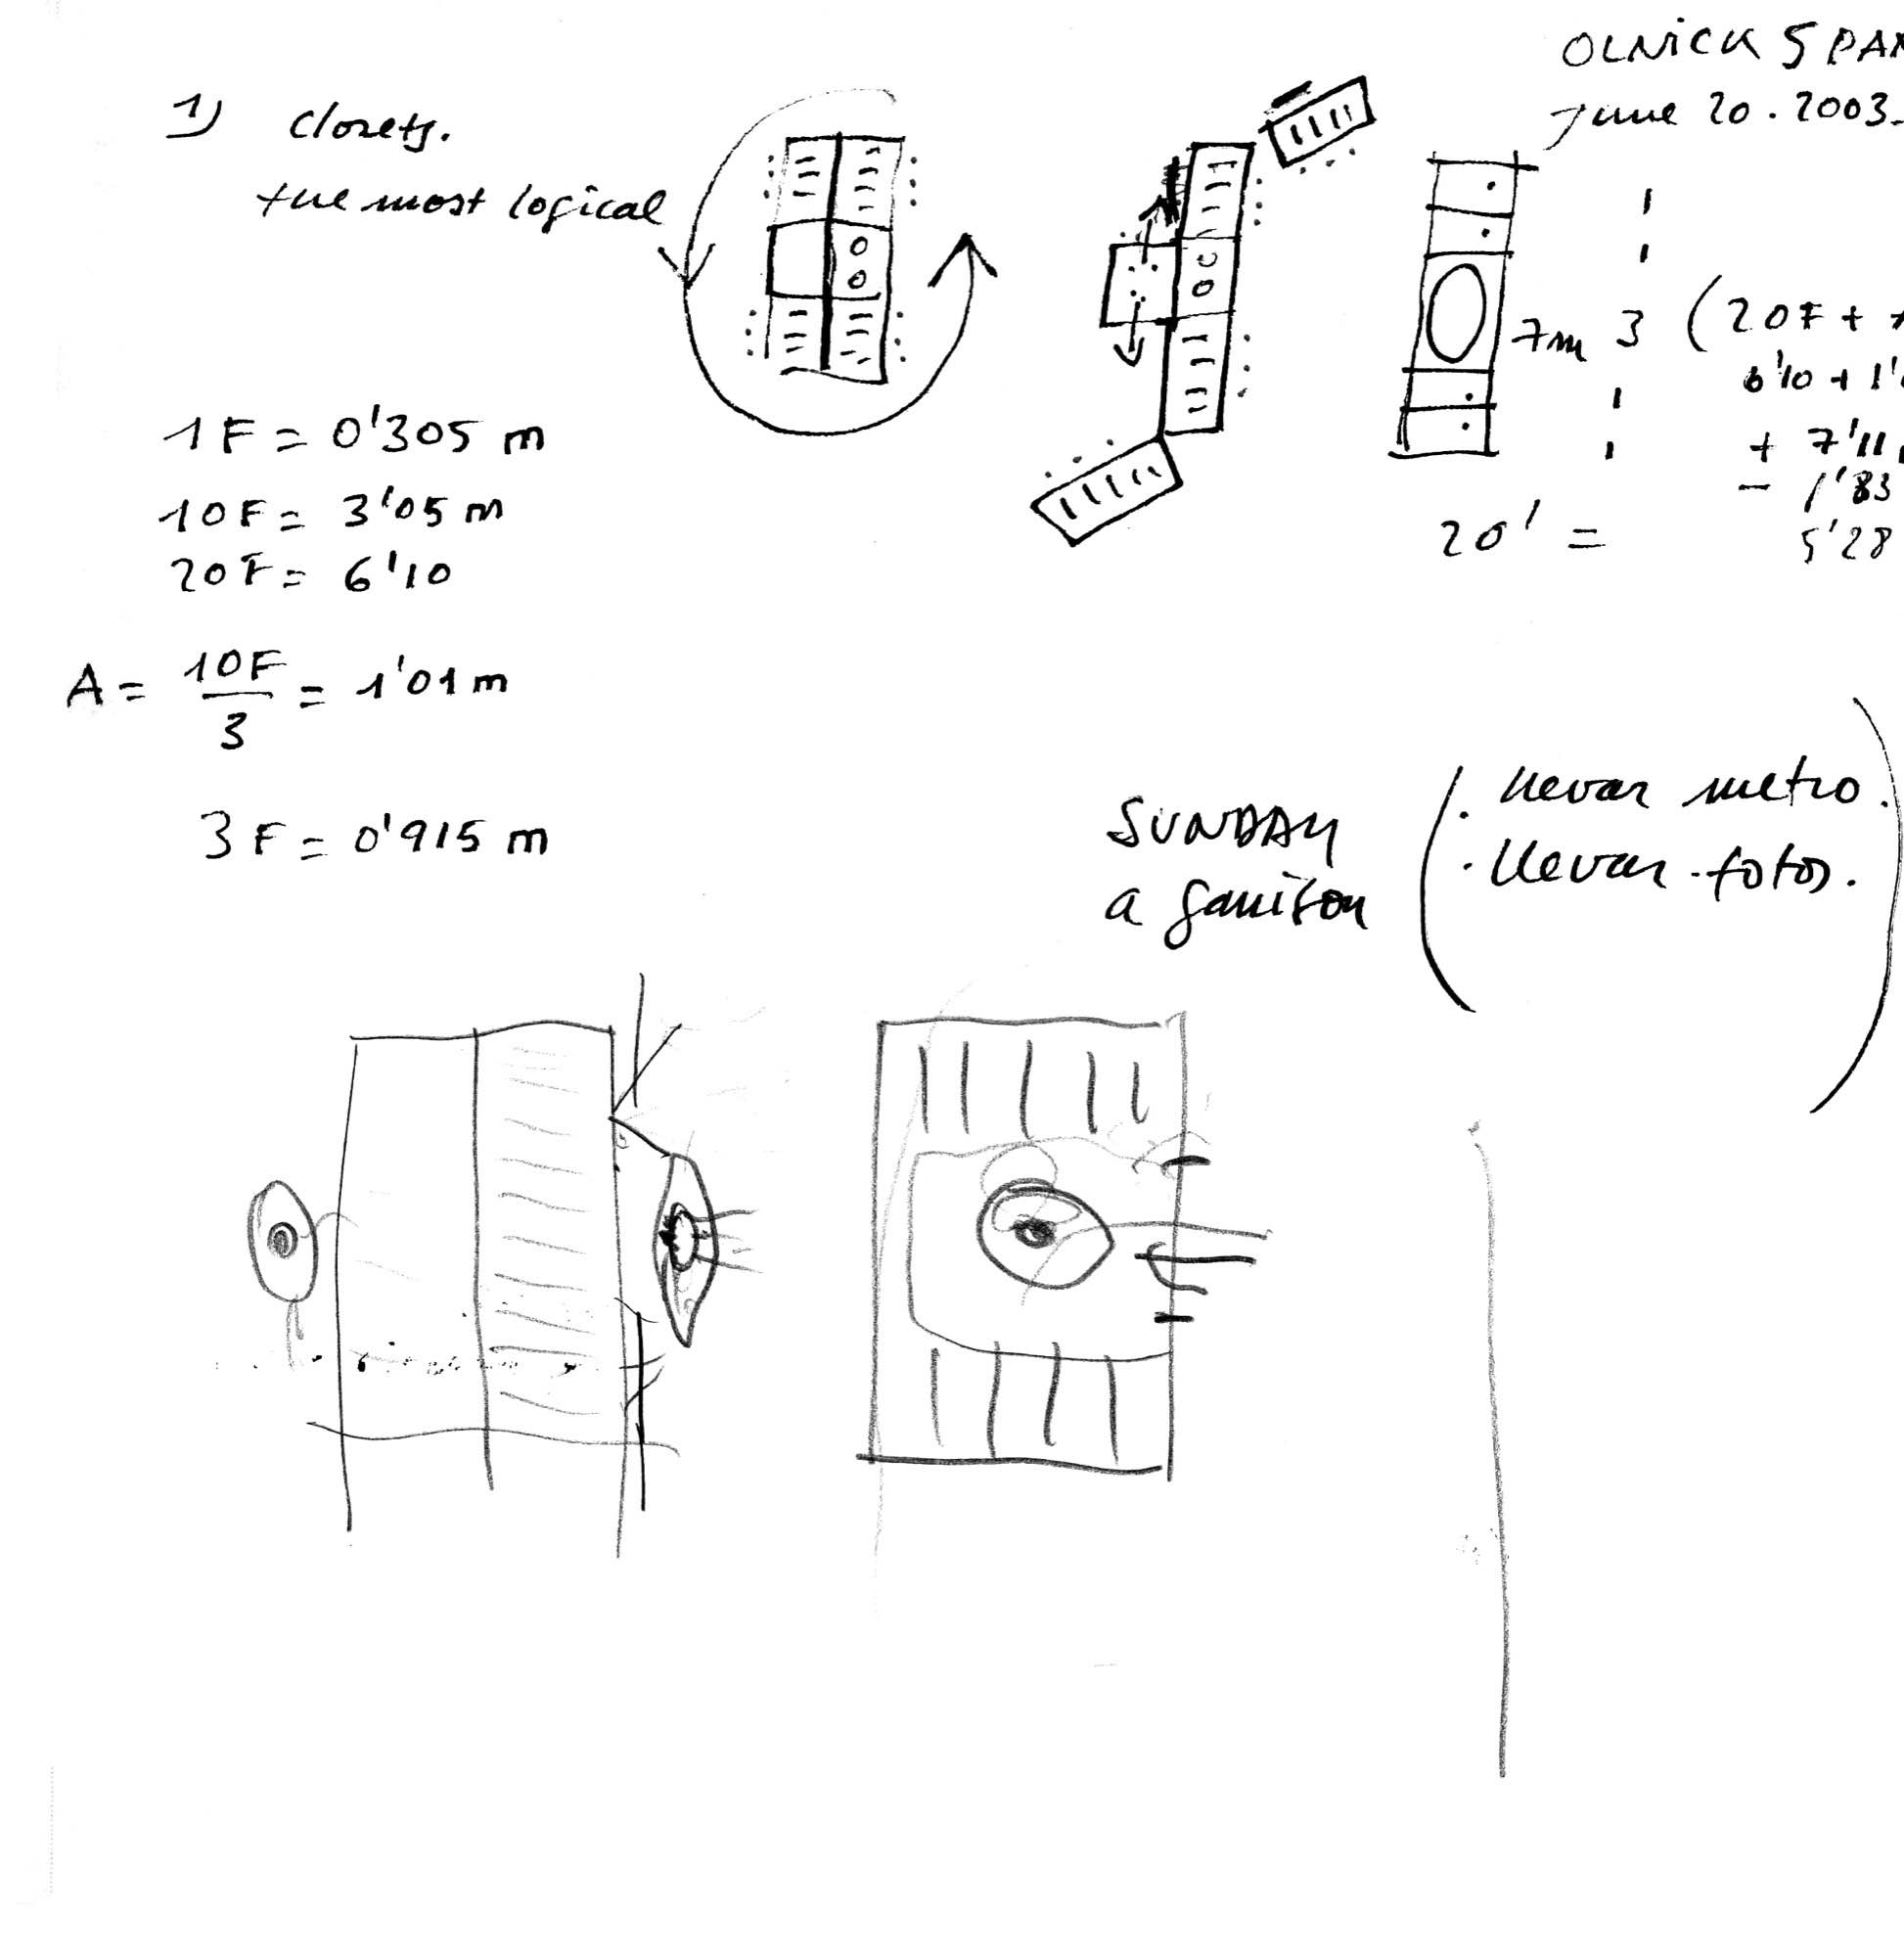 OLNICK SPAN
June 20. 2003.
1) Closets.
the most logical
1
1
7m 3 (20F +
6'10 + 1'
1
1
+ 7'11
- 1'83
20' = 5'28
1F = 0'305 m
10F = 3'05 m
20F = 6'10
A = 10F/3 = 1'01 m
3F = 0'915 m
SUNDAY
a Garrison
. llevar metro.
. llevar fotos.